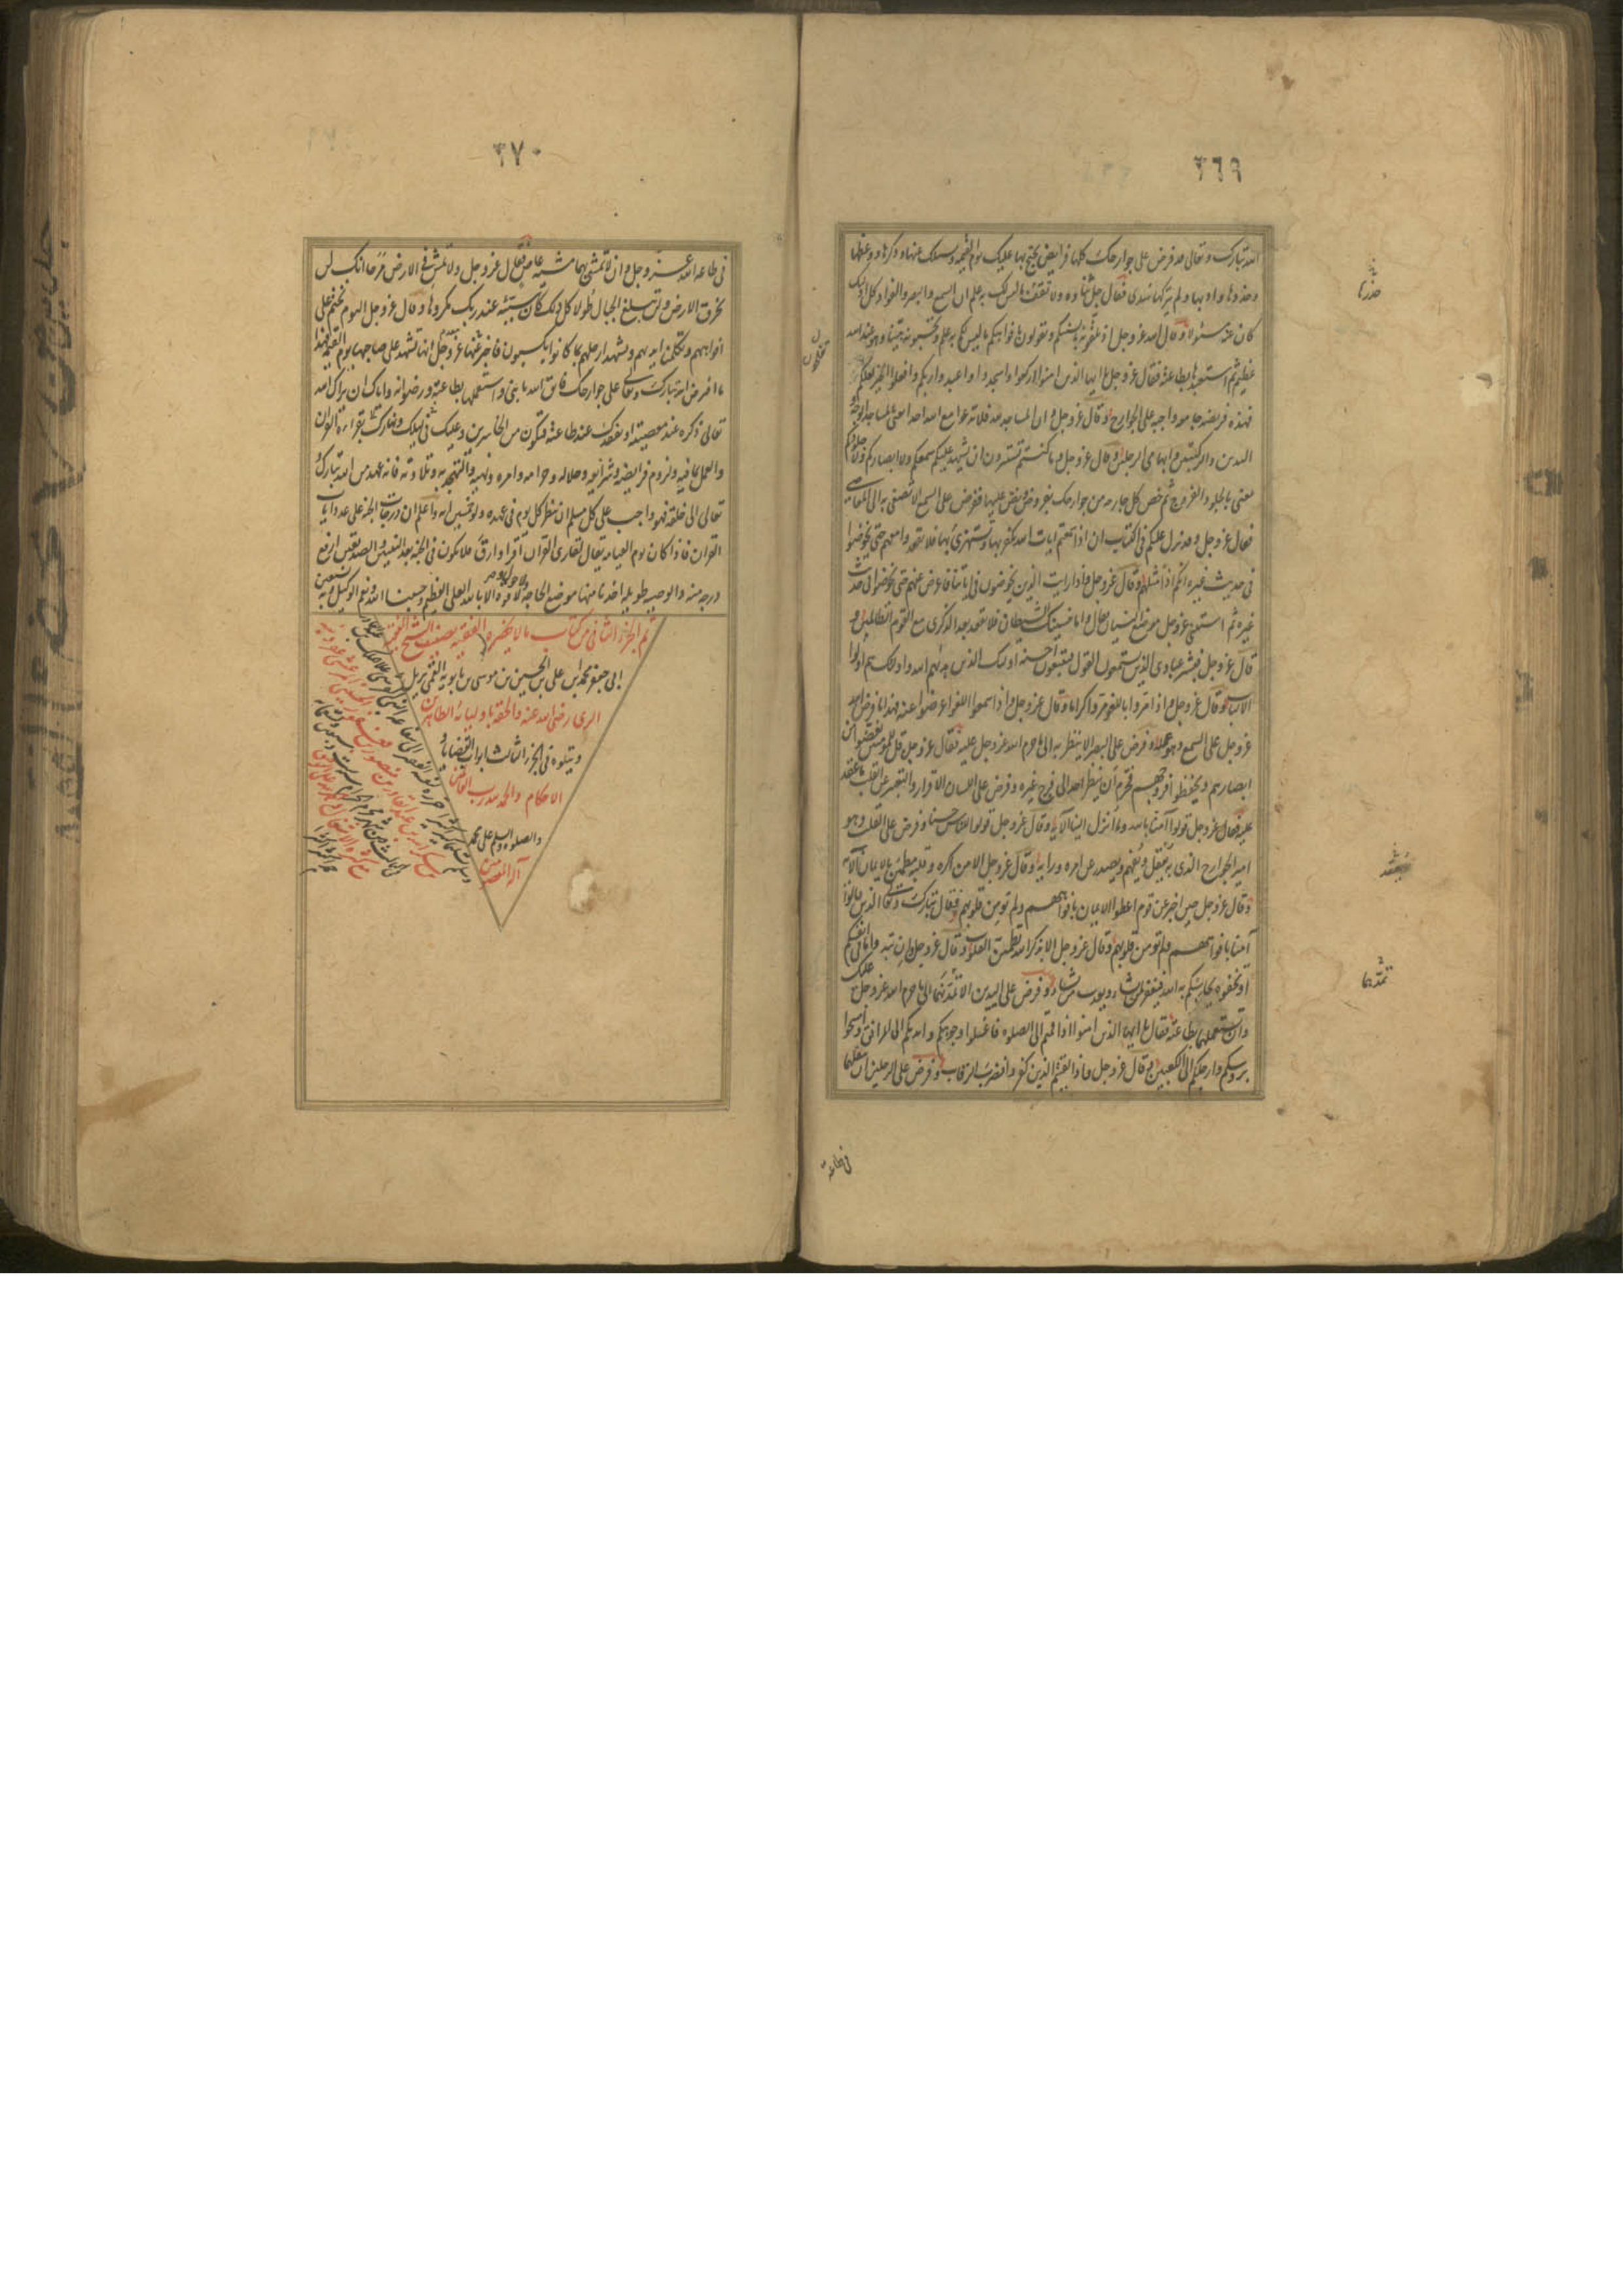 ٣٦٩
الله تبارك وتعالى قد فرض على جوارحك كلها فرايض يحتج بها عليك يوم القيمة ويسئلك عنها وذكرها ووعظها
وحذرها وادبها ولم يتركها سدى فقال جل ثناؤه ولا تقف ما ليس لك به علم ان السمع والبصر والفواد كل اولئك
كان عنه مسئولا وقال الله عز وجل اذ تلقونه بالسنتكم وتقولون بافواهكم ما ليس لكم به علم وتحسبونه هينا وهو عند الله
عظيم ثم استعبدها بطاعته فقال عز وجل يا ايها الذين امنوا اركعوا واسجدوا واعبدوا ربكم وافعلوا الخير لعلكم
فهذه فريضة جامعة واجبة على الجوارح وقال عز وجل وان المساجد لله فلا تدعوا مع الله احدا يعنى بالمساجد الوجه
اليدين والركبتين وابهامى الرجلين وقال عز وجل وما كنتم تستترون ان يشهد عليكم سمعكم ولا ابصاركم ولا جلودكم
يعنى بالجلود الفروج ثم خص كل جارحة من جوارحك بفرض ونص عليها ففرض على السمع الا تصغى به الى المعاصى
فقال عز وجل وقد نزل عليكم فى الكتاب ان اذا سمعتم ايات الله يكفر بها ويستهزئ بها فلا تقعدوا معهم حتى يخوضوا
فى حديث غيره انكم اذا مثلهم وقال عز وجل واذا رايت الذين يخوضون فى اياتنا فاعرض عنهم حتى يخوضوا فى حديث
غيره ثم استثنى عز وجل موضع النسيان فقال واما ينسينك الشيطان فلا تقعد بعد الذكرى مع القوم الظالمين و
قال عز وجل فبشر عبادى الذين يستمعون القول فيتبعون احسنه اولئك الذين هديهم الله واولئك هم اولوا
الالباب وقال عز وجل واذا مروا باللغو مروا كراما وقال عز وجل واذا سمعوا اللغو اعرضوا عنه فهذا ما فرض الله
عز وجل على السمع وهو عمله وفرض على البصر الا ينظر به الى ما حرم الله عز وجل عليه فقال عز وجل قل للمؤمنين يغضوا من
ابصارهم ويحفظوا فروجهم فحرم ان ينظر احد الى فرج غيره وفرض على اللسان الاقرار والتعبير عن القلب ما عقد
عليه فقال عز وجل قولوا آمنا بالله وما انزل الينا الاية وقال عز وجل قولوا للناس حسنا وفرض على القلب وهو
امير الجوارح الذى به يعقل ويفهم ويصدر عن امره ورايه وقال عز وجل الا من اكره وقلبه مطمئن بالايمان الآية
وقال عز وجل حين اخبر عن قوم اعطوا الايمان بافواههم ولم تؤمن قلوبهم فقال تبارك وتعالى الذين قالوا
آمنا بافواههم ولم تؤمن قلوبهم وقال عز وجل الا بذكر الله تطمئن القلوب وقال عز وجل وان تبدوا ما فى انفسكم
او تخفوه يحاسبكم به الله فيغفر لمن يشاء ويعذب من يشاء وفرض على اليدين الا تمدهما الى ما حرم الله عز وجل عليك
وان تستعملهما بطاعته فقال يا ايها الذين امنوا اذا قمتم الى الصلوة فاغسلوا وجوهكم وايديكم الى المرافق وامسحوا
برؤسكم وارجلكم الى الكعبين وقال عز وجل فاذا لقيتم الذين كفروا فضرب الرقاب وفرض على الرجلين ان تنقلهما
تفلحون
حذرها
تمدهما
فى طاعته
٣٧٠
فى طاعة الله عز وجل وان لا تمشى بهما مشية عاص فقال عز وجل ولا تمش فى الارض مرحا انك لن
تخرق الارض ولن تبلغ الجبال طولا كل ذلك كان سيئه عند ربك مكروها وقال عز وجل اليوم نختم على
افواههم وتكلمنا ايديهم وتشهد ارجلهم بما كانوا يكسبون فاخبر عنها عز وجل انها تشهد على صاحبها يوم القيمة فهذا
ما فرض الله تبارك وتعالى على جوارحك فاتق الله يا بنى واستعملها بطاعته ورضوانه واياك ان يراك الله
تعالى ذكره عند معصيته او يفقدك عند طاعته فتكون من الخاسرين وعليك فى ليلك ونهارك بقراءة القران
والعمل بما فيه ولزوم فرايضه وشرايعه وحلاله وحرامه وامره ونهيه والتهجد به وتلاوته فانه عهد من الله تبارك و
تعالى الى خلقه فهو واجب على كل مسلم ان ينظر كل يوم فى عهده ولو خمسين اية واعلم ان درجات الجنة على عدد ايات
القران فاذا كان يوم القيامة يقال لقارى القران اقرا وارق فلا يكون فى الجنة بعد النبيين والصديقين ارفع
درجة منه والوصية طويلة اخذنا منها موضع الحاجة ولا حول ولا قوة الا بالله العلى العظيم وحسبنا الله ونعم الوكيل وبه نستعين
تم الجزء الثانى من كتاب من لا يحضره الفقيه تصنيف الشيخ الفقيه
ابى جعفر محمد ابن على بن الحسين بن موسى بن بابويه القمى نزيل
الرى رضى الله عنه والحقه باوليائه الطاهرين
ويتلوه فى الجزء الثالث ابواب القضايا و
الاحكام والحمد لله رب العالمين
والصلوة والسلم على محمد
آله المعصومين